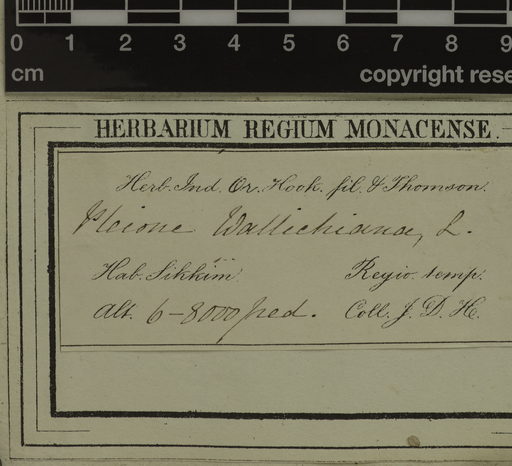 0 1 2 3 4 5 6 7 8 9
cm copyright rese
HERBARIUM REGIUM MONACENSE.
Herb. Ind. Or. Hook. fil. & Thomson.
Pleione Wallichiana, L.
Hab. Sikkim Regio temp.
Alt. 6–8000 ped. Coll. J. D. H.